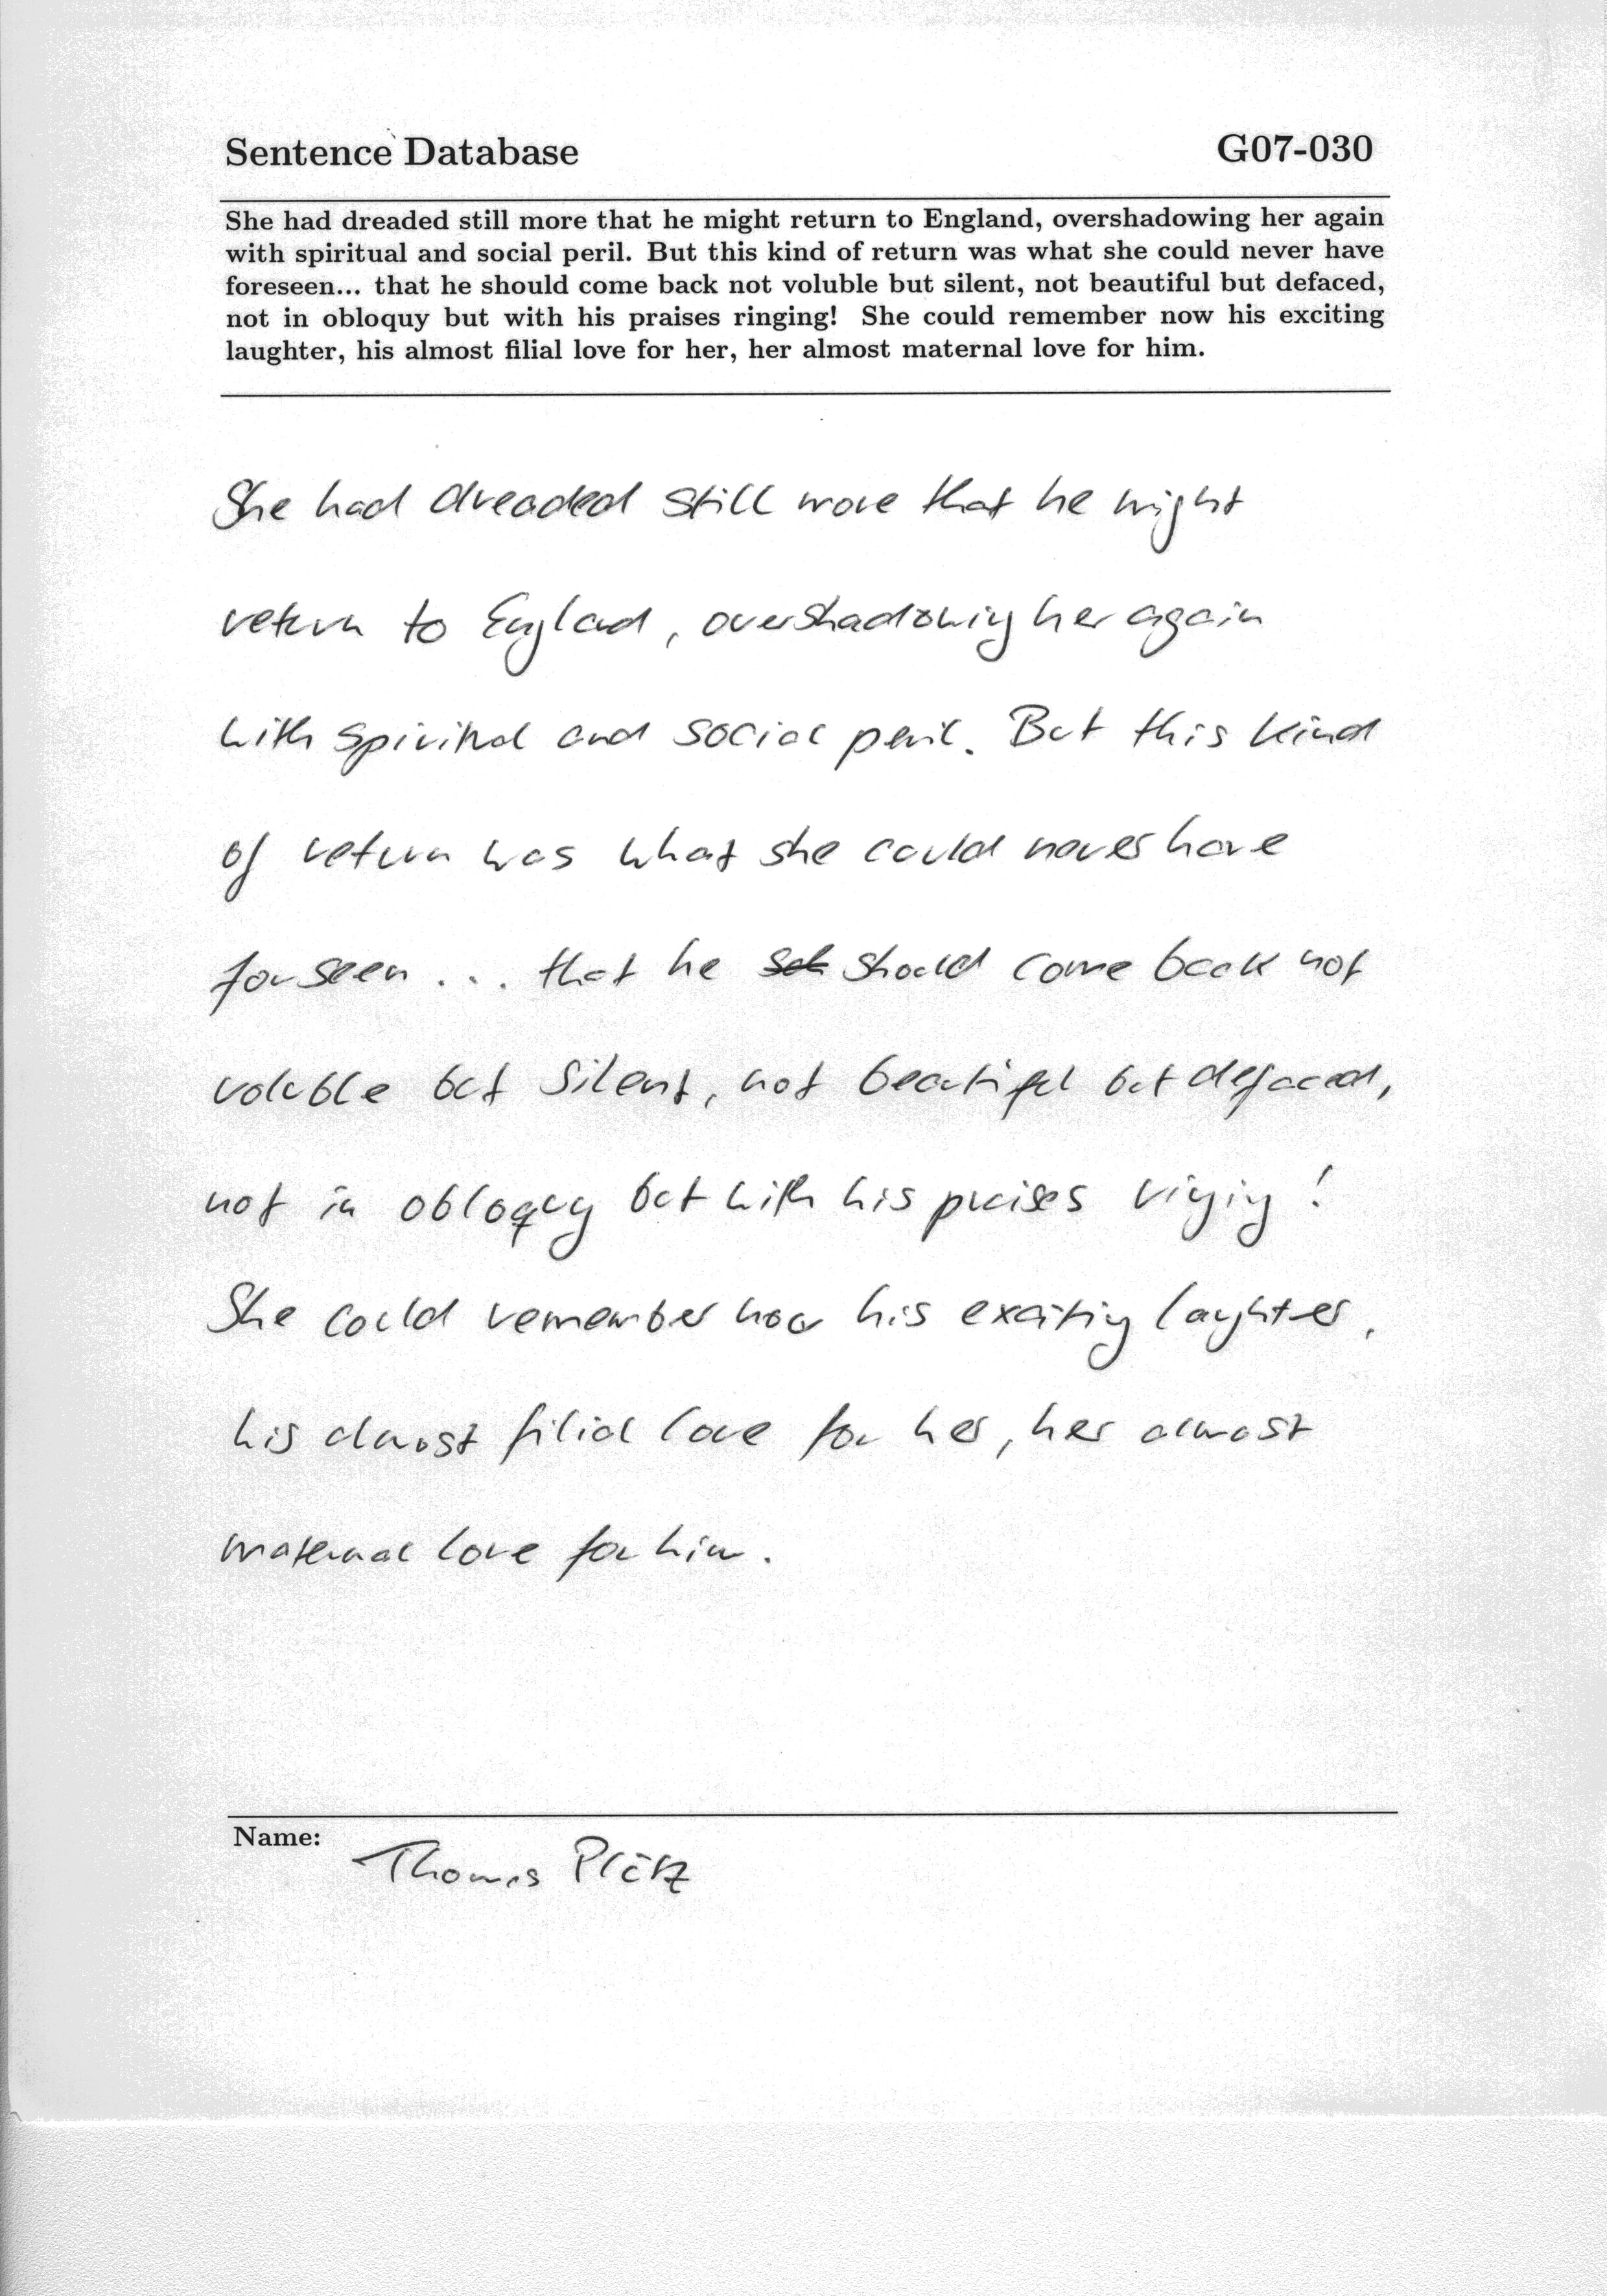 Sentence Database G07-030
She had dreaded still more that he might return to England, overshadowing her again
with spiritual and social peril. But this kind of return was what she could never have
foreseen... that he should come back not voluble but silent, not beautiful but defaced,
not in obloquy but with his praises ringing! She could remember now his exciting
laughter, his almost filial love for her, her almost maternal love for him.
She had dreaded still more that he might
return to England, overshadowing her again
with spiritual and social peril. But this kind
of return was what she could never have
forseen... that he should come back not
voluble but silent, not beautiful but defaced,
not in obloquy but with his praises ringing!
She could remember now his exciting laughter,
his almost filial love for her, her almost
maternal love for him.
Name: Thomas Plötz